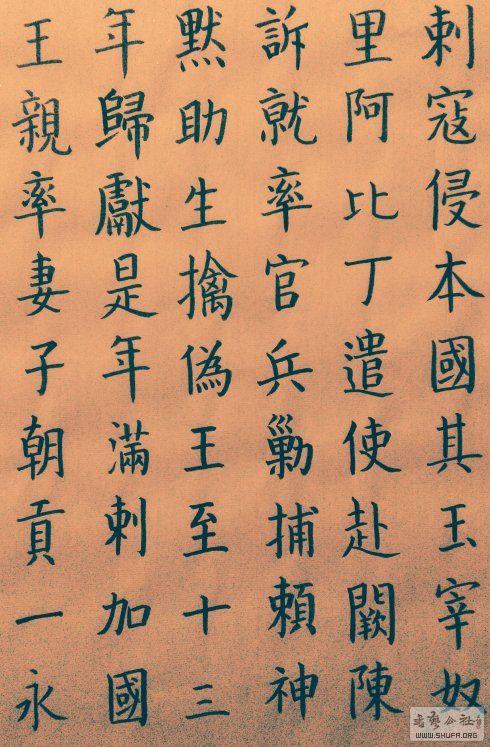 剌寇侵本國其王宰奴
里阿比丁遣使赴闕陳
訴就率官兵勦捕賴神
默助生擒偽王至十三
年歸獻是年滿剌加國
王親率妻子朝貢一永
WWW.SHUFA.ORG